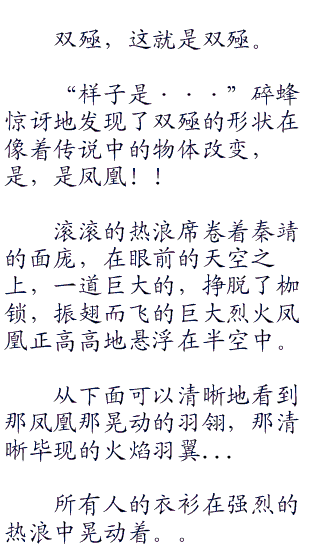 双殛，这就是双殛。
“样子是···”碎蜂
惊讶地发现了双殛的形状在
像着传说中的物体改变，
是，是凤凰！！
滚滚的热浪席卷着秦靖
的面庞，在眼前的天空之
上，一道巨大的，挣脱了枷
锁，振翅而飞的巨大烈火凤
凰正高高地悬浮在半空中。
从下面可以清晰地看到
那凤凰那晃动的羽翎，那清
晰毕现的火焰羽翼...
所有人的衣衫在强烈的
热浪中晃动着。。